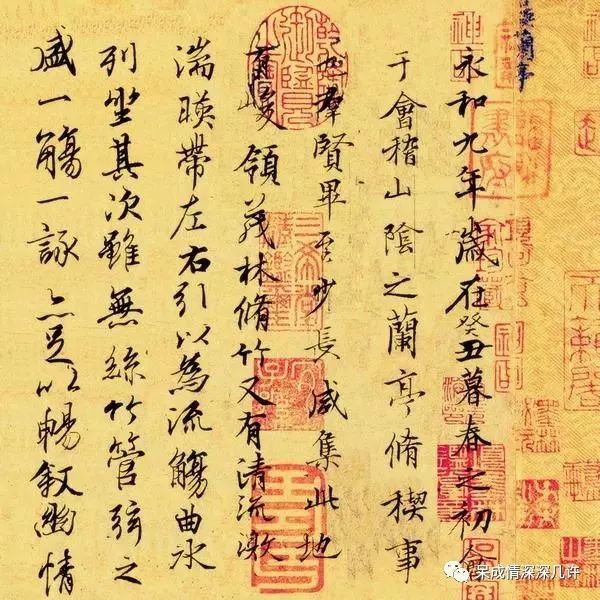 蘭亭
永和九年歲在癸丑暮春之初會
于會稽山陰之蘭亭脩稧事
也羣賢畢至少長咸集此地
有峻領茂林脩竹又有清流激
湍暎帶左右引以為流觴曲水
列坐其次雖無絲竹管弦之
盛一觴一詠亦足以暢敘幽情
呆成情深深几许